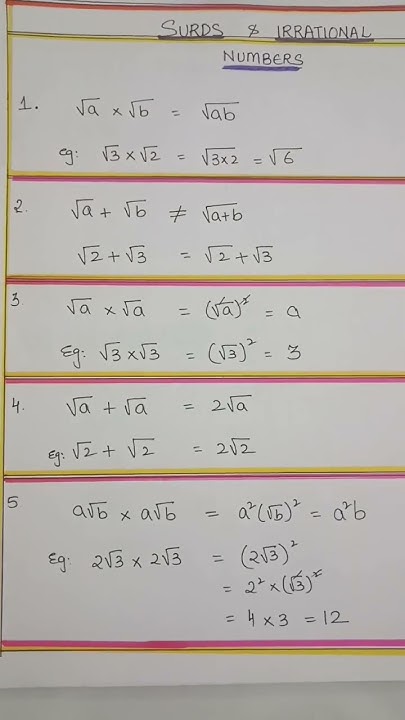 SURDS & IRRATIONAL
NUMBERS
1. √a × √b = √ab
eg: √3 × √2 = √3×2 = √6
2. √a + √b ≠ √a+b
√2 + √3 = √2 + √3
3. √a × √a = (√a)² = a
Eg: √3 × √3 = (√3)² = 3
4. √a + √a = 2√a
Eg: √2 + √2 = 2√2
5 a√b × a√b = a²(√b)² = a²b
Eg: 2√3 × 2√3 = (2√3)²
= 2² × (√3)²
= 4 × 3 = 12